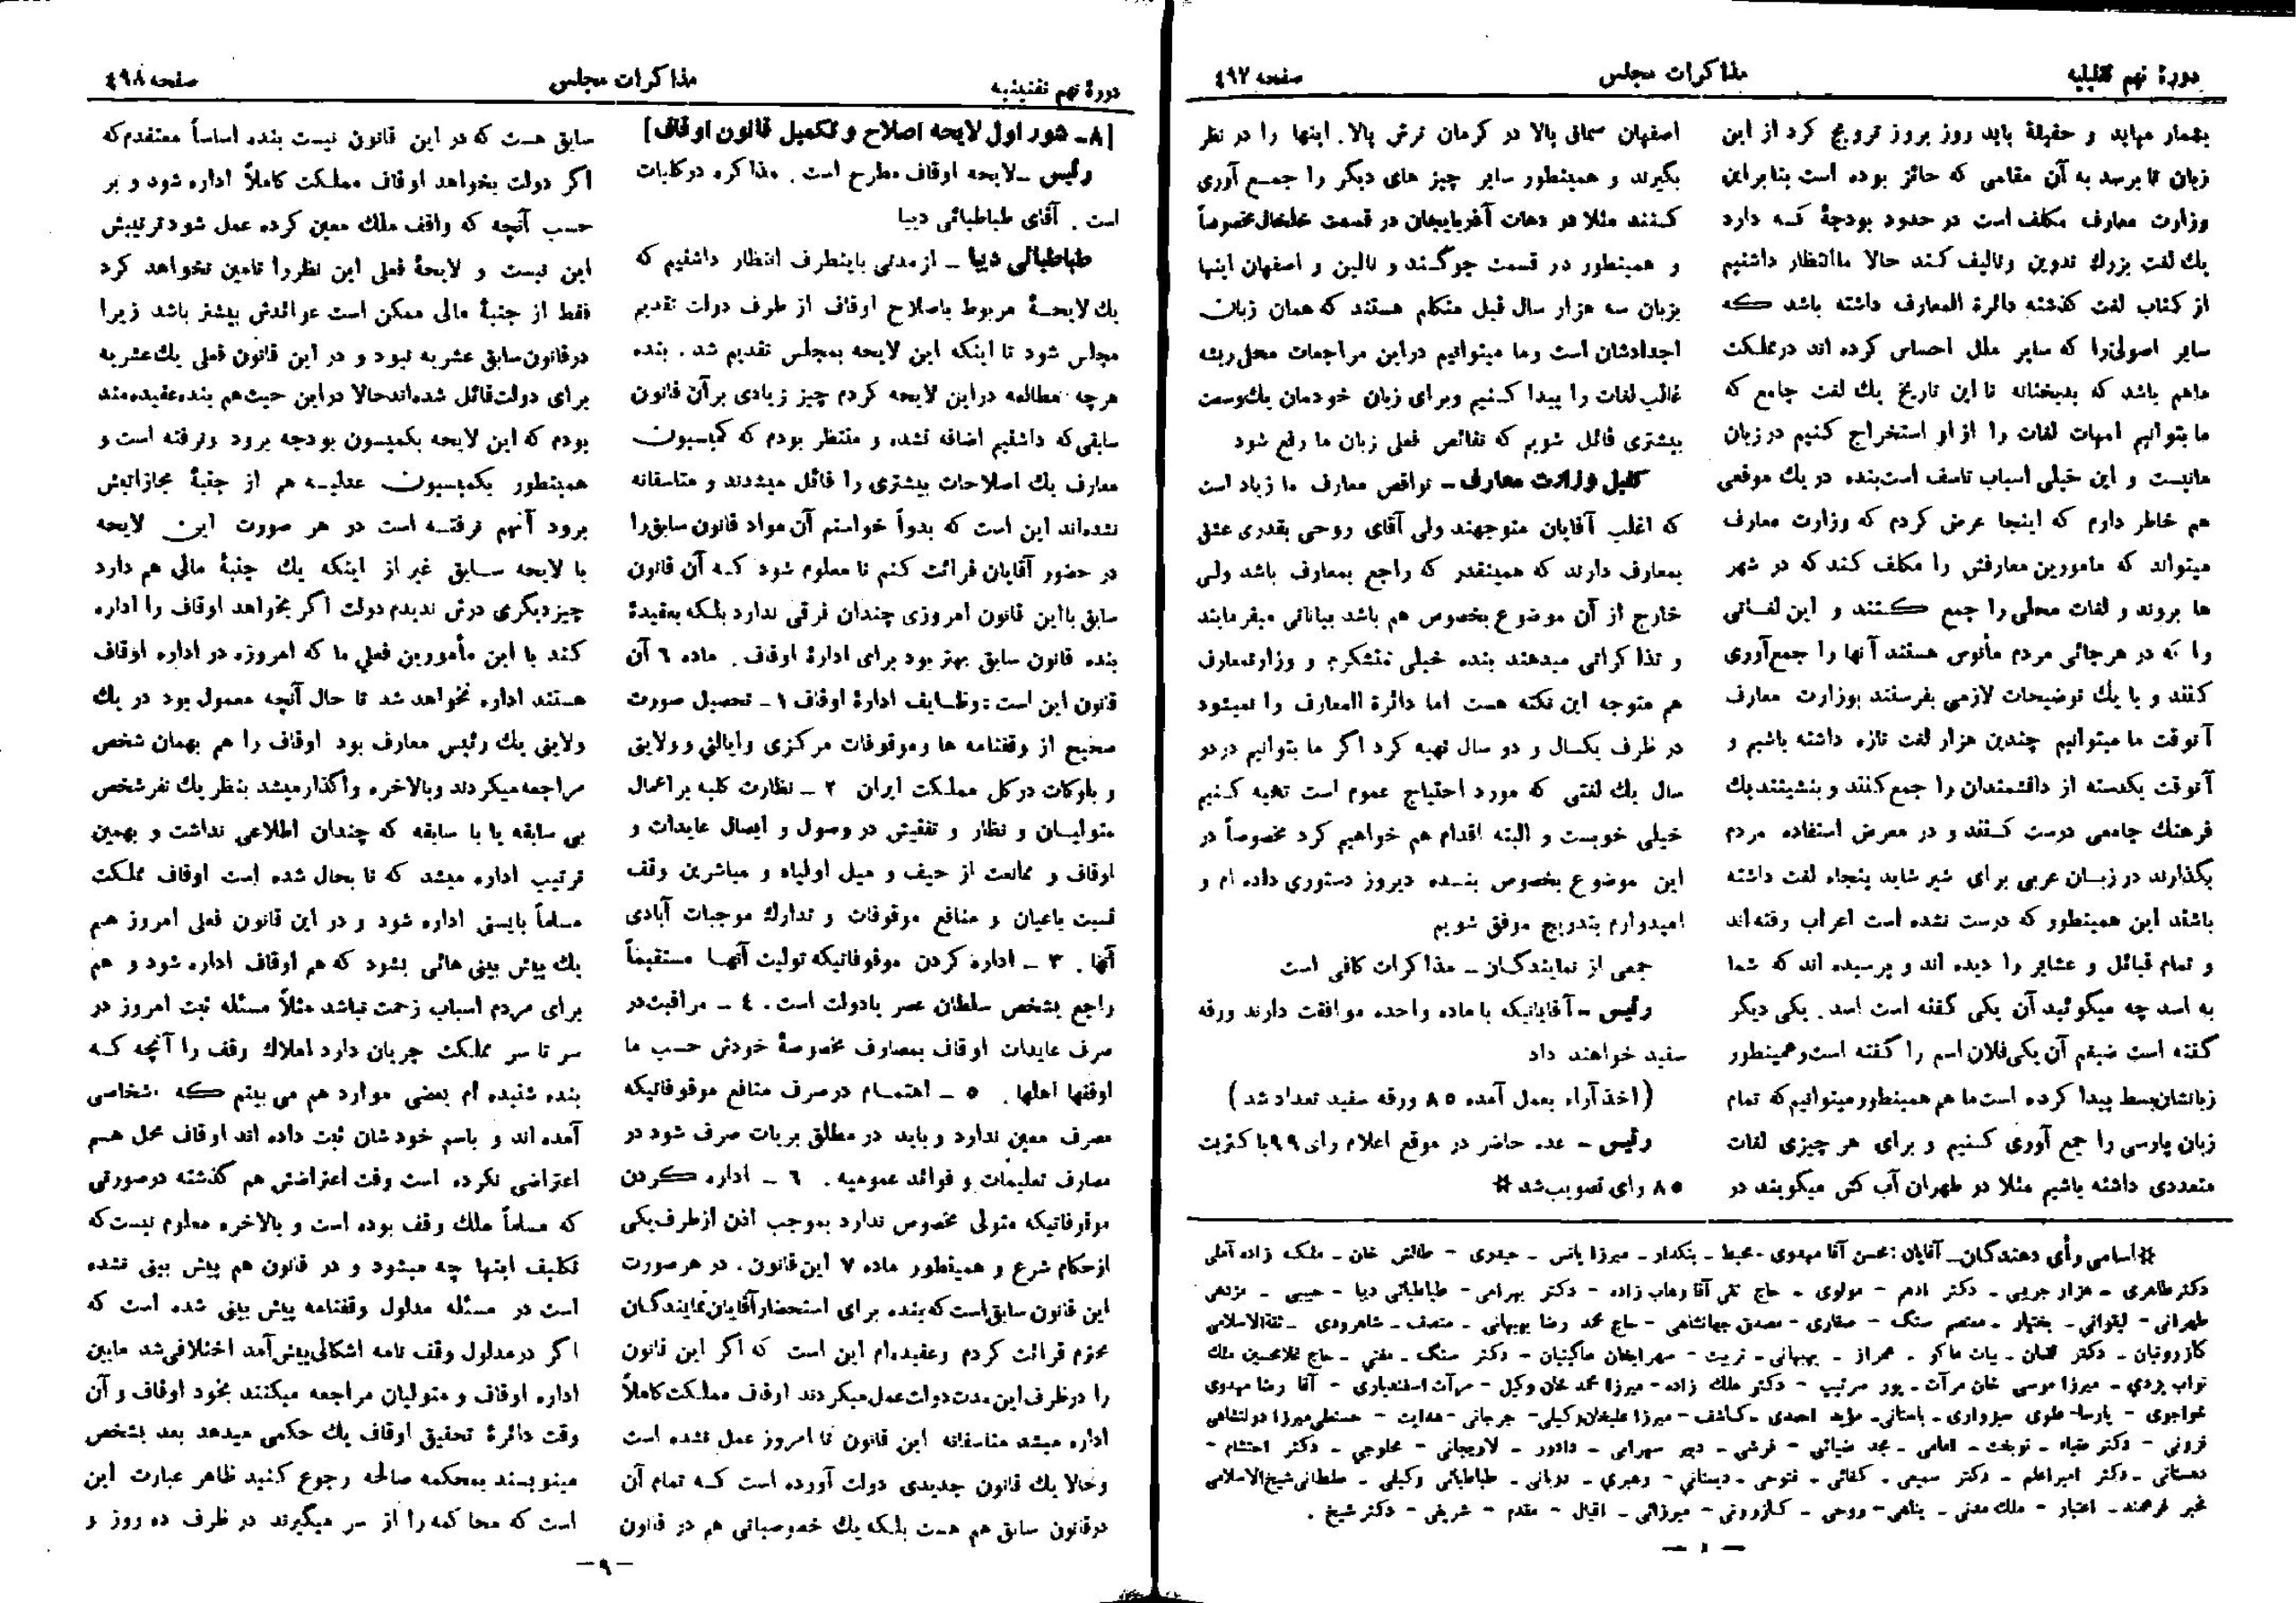 دورهٔ نهم تقنینیه
مذاکرات مجلس
صفحه ۴۹۷
بشمار میاید و حقیقةً باید روز بروز ترویج کرد از این
زبان تا برسد به آن مقامی که حائز بوده است بنابراین
وزارت معارف مکلف است در حدود بودجهٔ که دارد
یك لغت بزرك تدوین و تالیف کند حالا ما انتظار داشتیم
از کتاب لغت گذشته دائرة المعارف داشته باشد که
سایر اصولی را که سایر ملل احساس کرده اند در مملکت
ماهم باشد که بدبختانه تا این تاریخ یك لغت جامع که
ما بتوانیم امهات لغات را از او استخراج کنیم در زبان
مانیست و این خیلی اسباب تاسف است بنده در یك موقعی
هم خاطر دارم که اینجا عرض کردم که وزارت معارف
میتواند که مامورین معارفش را مکلف کند که در شهر
ها بروند و لغات محلی را جمع کنند و این لغاتی
را که در هرجائی مردم مأنوس هستند آنها را جمع آوری
کنند و با یك توضیحات لازمی بفرستند بوزارت معارف
آنوقت ما میتوانیم چندین هزار لغت تازه داشته باشیم و
آنوقت یکدسته از دانشمندان را جمع کنند و بنشینند یك
فرهنك جامعی درست کنند و در معرض استفاده مردم
بگذارند در زبان عربی برای شیر شاید پنجاه لغت داشته
باشند این همینطور که درست نشده است اعراب رفته اند
و تمام قبائل و عشایر را دیده اند و پرسیده اند که شما
به اسد چه میگوئید آن یکی گفته است اسد. یکی دیگر
گفته است ضیغم آن یکی فلان اسم را گفته است و همینطور
زبانشان بسط پیدا کرده است ما هم همینطور میتوانیم که تمام
زبان پارسی را جمع آوری کنیم و برای هر چیزی لغات
متعددی داشته باشیم مثلا در طهران آب کش میگویند در
اصفهان سماق پالا در کرمان ترش پالا. اینها را در نظر
بگیرند و همینطور سایر چیز های دیگر را جمع آوری
کنند مثلا در دهات آذربایجان در قسمت خلخال مخصوصاً
و همینطور در قسمت جوگند و نائین و اصفهان اینها
بزبان سه هزار سال قبل متکلم هستند که همان زبان
اجدادشان است و ما میتوانیم در این مراجعات محلی ریشه
غالب لغات را پیدا کنیم و برای زبان خودمان یك وسعت
بیشتری قائل شویم که نقائص فعلی زبان ما رفع شود
کفیل وزارت معارف ـ نواقص معارف ما زیاد است
که اغلب آقایان متوجهند ولی آقای روحی بقدری عشق
بمعارف دارند که همینقدر که راجع بمعارف باشد ولی
خارج از آن موضوع بخصوص هم باشد بیاناتی میفرمایند
و تذاکراتی میدهند بنده خیلی متشکرم و وزارت معارف
هم متوجه این نکته هست اما دائرة المعارف را نمیشود
در ظرف یکسال و دو سال تهیه کرد اگر ما بتوانیم در دو
سال یك لغتی که مورد احتیاج عموم است تهیه کنیم
خیلی خوبست و البته اقدام هم خواهیم کرد مخصوصاً در
این موضوع بخصوص بنده دیروز دستوری داده ام و
امیدوارم بتدریج موفق شویم
جمعی از نمایندگان ـ مذاکرات کافی است
رئیس ـ آقایانیکه با ماده واحده موافقت دارند ورقه
سفید خواهند داد
(اخذ آراء بعمل آمده ۸۵ ورقه سفید تعداد شد)
رئیس ـ عده حاضر در موقع اعلام رأی ۹۹ با کثریت
۸۵ رأی تصویب شد #
# اسامی رأی دهندگان ـ آقایان: محسن آقا مهدوی - محیط ـ بنکدار ـ میرزا یانس ـ حیدری - طالش خان ـ ملک زاده آملی
دکتر طاهری - هزار جریبی ـ دکتر ادهم - مولوی ـ حاج تقی آقا وهاب زاده - دکتر بهرامی - طباطبائی دیبا - حبیبی ـ مژدهی
طهرانی - لیقوانی ـ بختیار ـ معتصم سنگ - صفاری - مصدق جهانشاهی - حاج محمد رضا بهبهانی ـ منصف ـ شاهرودی ـ ثقة الاسلامی
کازرونیان ـ دکتر لقمان ـ بیات ماکو ـ همراز ـ بهبهانی ـ تربیت - سهرابخان ساگینیان - دکتر سنگ ـ مفتی ـ حاج غلامحسین ملك
نواب یزدی ـ میرزا موسی خان مرآت ـ پور سرتیپ - دکتر ملك زاده - میرزا محمد خان وکیل - مرآت اسفندیاری - آقا رضا مهدوی
خواجوی - پارسا - علوی سبزواری ـ باستانی ـ مؤید احمدی ـ کاشف - میرزا علیخان وکیلی - جرجانی - هدایت - حسنعلی میرزا دولتشاهی
قزونی - دکتر ضیاء ـ نوبخت ـ امامی ـ مجد ضیائی - فرشی ـ دبیر سهرابی ـ دادور ـ لاریجانی - مخلوجی ـ دکتر احتشام -
دهستانی ـ دکتر امیراعلم ـ دکتر سمیعی ـ کفائی ـ فتوحی ـ دبستانی - رهبری ـ نوبانی ـ طباطبائی وکیلی ـ سلطانی شیخ الاسلامی
مخبر فرهمند ـ اعتبار - ملك مدنی ـ پناهی - روحی ـ کازرونی - میرزائی ـ اقبال - مقدم - شریفی - دکتر شیخ .
دورهٔ نهم تقنینیه
مذاکرات مجلس
صفحه ۴۹۸
[۸ـ شور اول لایحه اصلاح و تکمیل قانون اوقاف]
رئیس ـ لایحه اوقاف مطرح است. مذاکره در کلیات
است. آقای طباطبائی دیبا
طباطبائی دیبا ـ از مدتی باینطرف انتظار داشتیم که
یك لایحهٔ مربوط باصلاح اوقاف از طرف دولت تقدیم
مجلس شود تا اینکه این لایحه بمجلس تقدیم شد. بنده
هرچه مطالعه در این لایحه کردم چیز زیادی بر آن قانون
سابقی که داشتیم اضافه نشده و منتظر بودم که کمیسیون
معارف یك اصلاحات بیشتری را قائل میشدند و متاسفانه
نشده‌اند این است که بدواً خواستم آن مواد قانون سابق را
در حضور آقایان قرائت کنم تا معلوم شود که آن قانون
سابق با این قانون امروزی چندان فرقی ندارد بلکه بعقیدهٔ
بنده قانون سابق بهتر بود برای ادارهٔ اوقاف. ماده ۶ آن
قانون این است: وظایف ادارهٔ اوقاف ۱ـ تحصیل صورت
صحیح از وقفنامه ها و موقوفات مرکزی و ایالتی و ولایتی
و بلوکات در کل مملکت ایران ۲ ـ نظارت کلیه بر اعمال
متولیان و نظار و تفتیش در وصول و ایصال عایدات و
اوقاف و ممانعت از حیف و میل اولیاء و مباشرین وقف
نسبت باعیان و منافع موقوفات و تدارك موجبات آبادی
آنها. ۳ ـ اداره کردن موقوفاتیکه تولیت آنها مستقیماً
راجع بشخص سلطان عصر یا دولت است. ۴ ـ مراقبت در
صرف عایدات اوقاف بمصارف مخصوصهٔ خودش حسب ما
اوقفها اهلها. ۵ ـ اهتمام در صرف منافع موقوفاتیکه
مصرف معین ندارد و باید در مطلق بریات صرف شود در
مصارف تعلیمات و فوائد عمومیه. ۶ ـ اداره کردن
موقوفاتیکه متولی مخصوص ندارد بموجب اذن از طرف یکی
از حکام شرع و همینطور ماده ۷ این قانون. در هر صورت
این قانون سابق است که بنده برای استحضار آقایان نمایندگان
محترم قرائت کردم و عقیده‌ام این است که اگر این قانون
را در ظرف این مدت دولت عمل میکردند اوقاف مملکت کاملاً
اداره میشد متاسفانه این قانون تا امروز عمل نشده است
و حالا یك قانون جدیدی دولت آورده است که تمام آن
در قانون سابق هم هست بلکه یك خصوصیاتی هم در قانون
سابق هست که در این قانون نیست بنده اساساً معتقدم که
اگر دولت بخواهد اوقاف مملکت کاملاً اداره شود و بر
حسب آنچه که واقف ملك معین کرده عمل شود ترتیبش
این نیست و لایحهٔ فعلی این نظر را تامین نخواهد کرد
فقط از جنبهٔ مالی ممکن است عوائدش بیشتر باشد زیرا
در قانون سابق عشریه نبود و در این قانون فعلی یك عشریه
برای دولت قائل شده‌اند حالا در این حیث هم بنده عقیده‌مند
بودم که این لایحه بکمیسیون بودجه برود و نرفته است و
همینطور بکمیسیون عدلیه هم از جنبهٔ مجازاتیش
برود آنهم نرفته است در هر صورت این لایحه
با لایحه سابق غیر از اینکه یك جنبهٔ مالی هم دارد
چیز دیگری درش ندیدم دولت اگر بخواهد اوقاف را اداره
کند با این مأمورین فعلی ما که امروزه در اداره اوقاف
هستند اداره نخواهد شد تا حال آنچه معمول بود در یك
ولایتی یك رئیس معارف بود اوقاف را هم بهمان شخص
مراجعه میکردند و بالاخره واگذار میشد بنظر یك نفر شخص
بی سابقه یا با سابقه که چندان اطلاعی نداشت و بهمین
ترتیب اداره میشد که تا بحال شده است اوقاف مملکت
مسلماً بایستی اداره شود و در این قانون فعلی امروز هم
یك پیش بینی هائی بشود که هم اوقاف اداره شود و هم
برای مردم اسباب زحمت نباشد مثلاً مسئله ثبت امروز در
سر تا سر مملکت جریان دارد املاك وقف را آنچه که
بنده شنیده ام بعضی موارد هم می بینم که اشخاصی
آمده اند و باسم خودشان ثبت داده اند اوقاف محل هم
اعتراضی نکرده است وقت اعتراضش هم گذشته در صورتی
که مسلماً ملك وقف بوده است و بالاخره معلوم نیست که
تکلیف اینها چه میشود و در قانون هم پیش بینی نشده
است در مسئله مدلول وقفنامه پیش بینی شده است که
اگر در مدلول وقف نامه اشکالی پیش آمد اختلافی شد مابین
اداره اوقاف و متولیان مراجعه میکنند بخود اوقاف و آن
وقت دائرهٔ تحقیق اوقاف یك حکمی میدهد بعد بشخص
مینویسند بمحکمه صالحه رجوع کنید ظاهر عبارت این
است که محاکمه را از سر میگیرند در ظرف ده روز و
ـ ۹ ـ